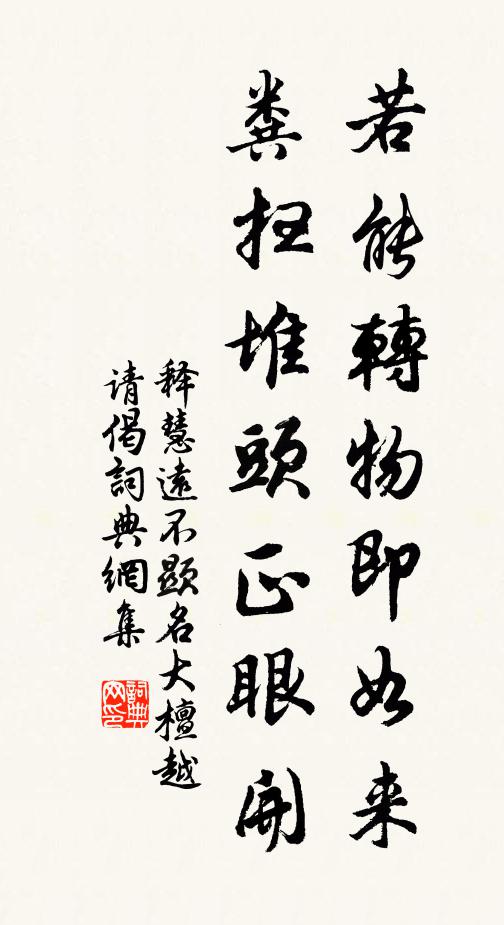 若能轉物即如来
糞扫堆頭正眼開
释慧遠不顯名大檀越
请偈詞典網集
詞典网印